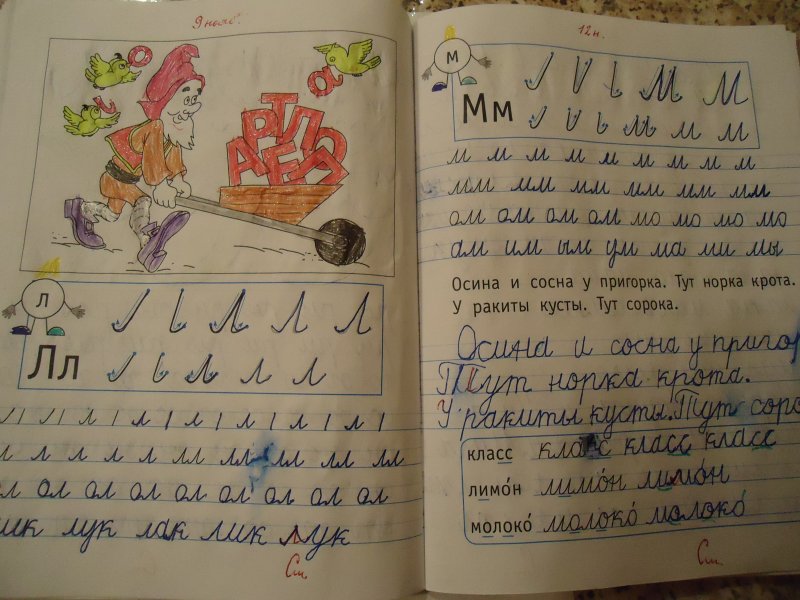 9 нояб.
о
с
а
А Р Т Л
Е
л
Л Л Л
Лл
л л л
л л л л л л
л л л л лл лл лл лл лл
ол ол ол ол ол ол ол ол
лук лак лик лук
См.
12 н.
м
М М
Мм
м м м
м м м м м м м м м м
мм мм мм мм мм мм
ом ом ом ом мо мо мо мо
ам им ым ум ма ми мы
Осина и сосна у пригорка. Тут норка крота.
У ракиты кусты. Тут сорока.
Осина и сосна у приго
Тут норка крота.
У ракиты кусты. Тут соро
класс класс класс класс
лимо́н лимо́н лимо́н
молоко́ молоко́ молоко́
См.